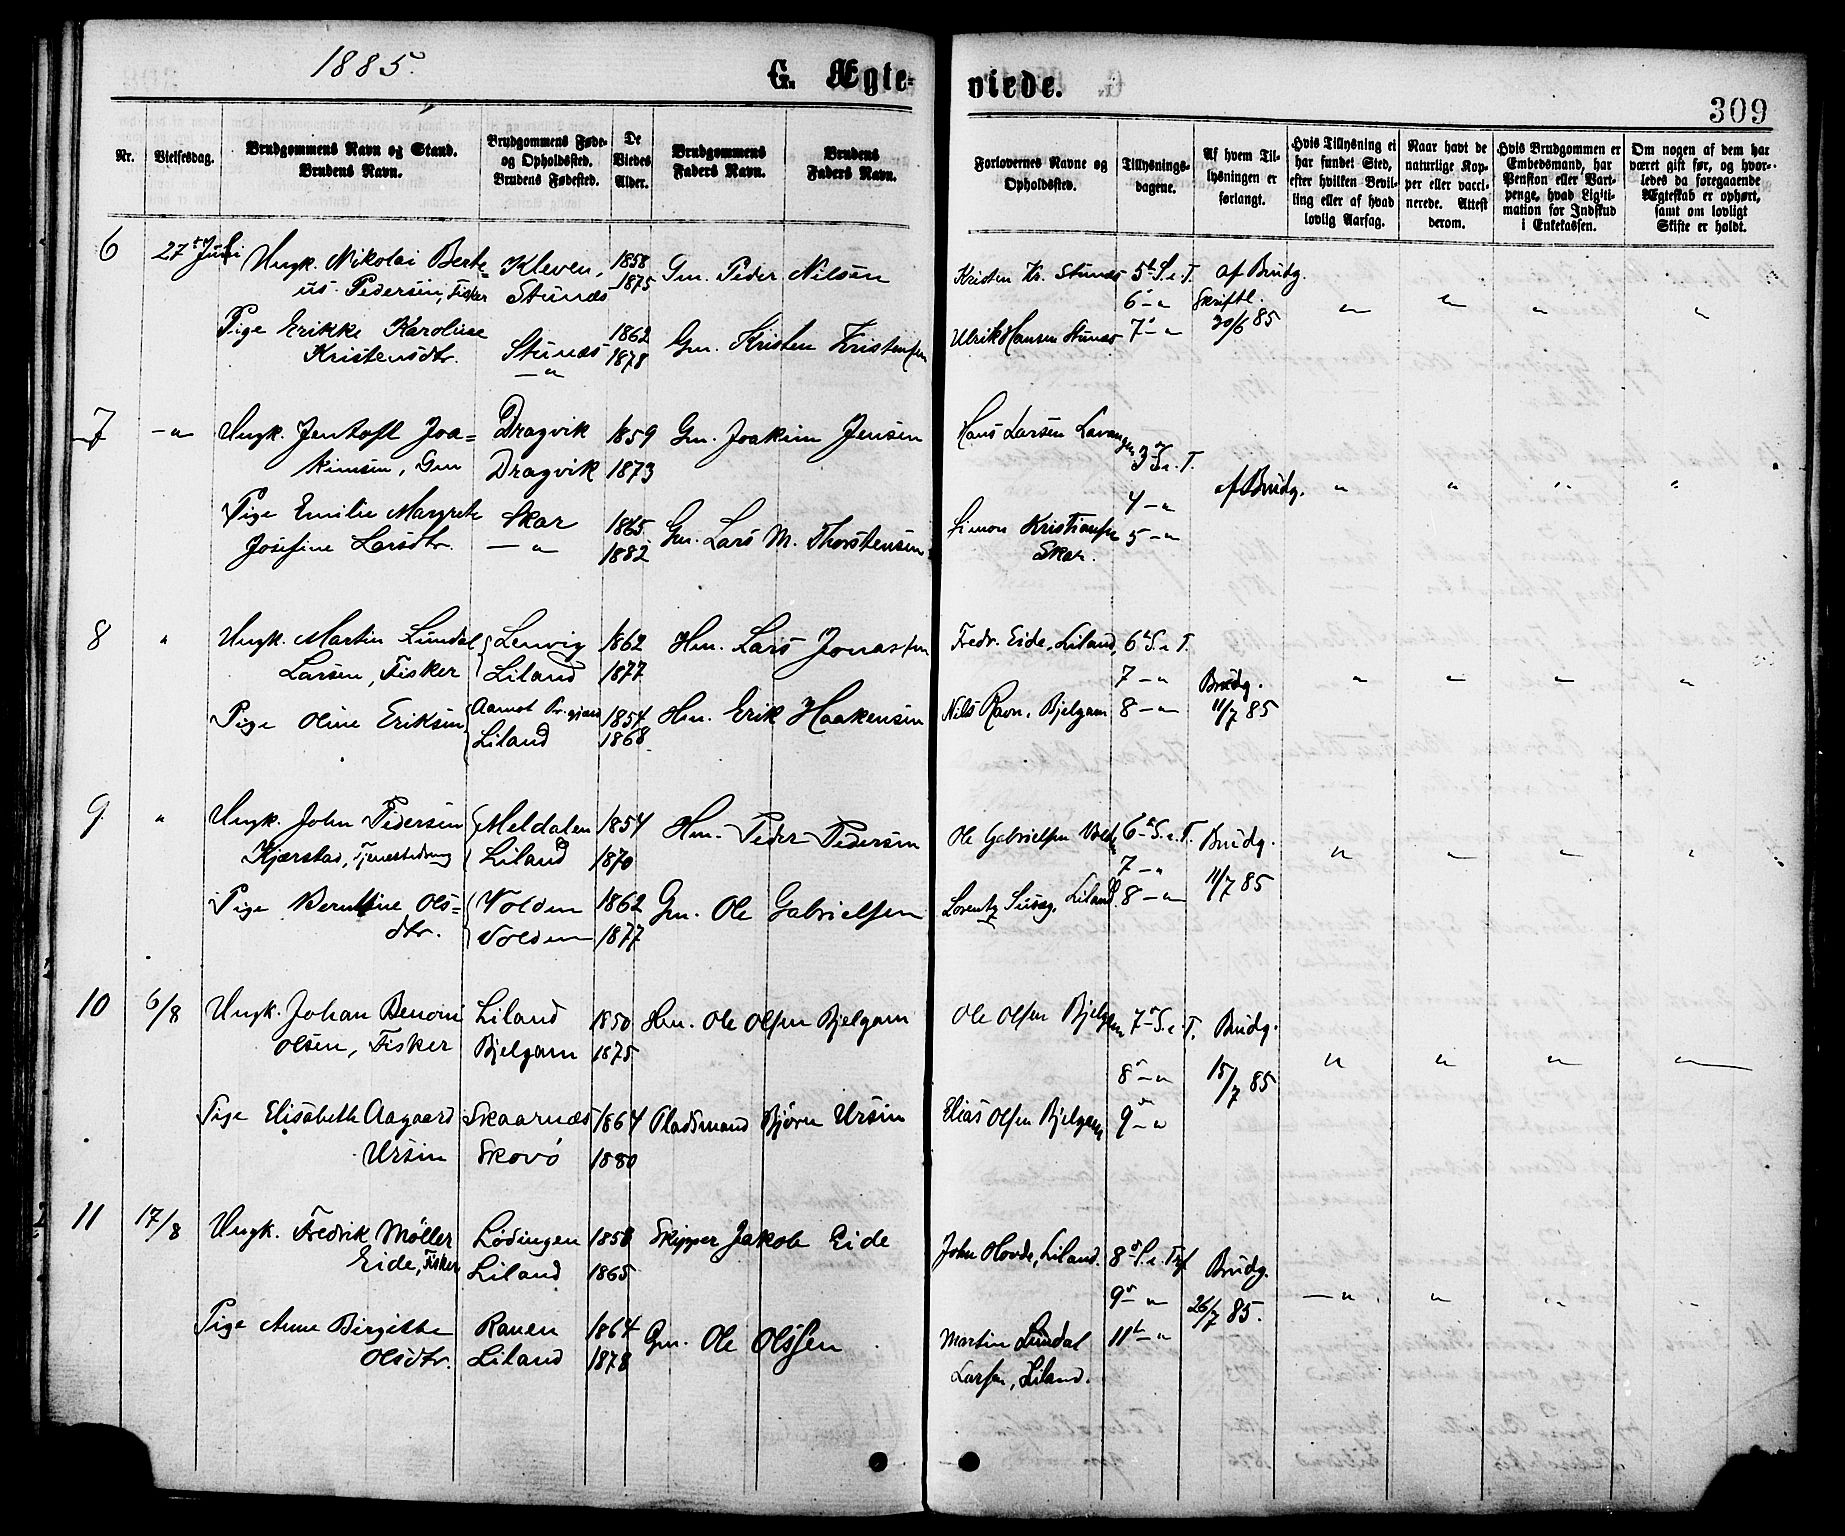 1885.
G. Ægte-
viede.
309
Nr.
Vielsesdag.
Brudgommens Navn og Stand.
Brudens Navn.
Brudgommens Føde-
og Opholdssted.
Brudens Fødested.
De
Viedes
Alder.
Brudgommens
Faders Navn.
Brudens
Faders Navn.
Forlovernes Navne og
Opholdssted.
Tillysnings-
dagene.
Af hvem Til-
lysningen er
forlangt.
Hvis Tillysning ei
har fundet Sted,
efter hvilken Bevil-
ling eller af hvad
lovlig Aarsag.
Naar havt de
naturlige Kop-
per eller vacci-
nerede. Attest
derom.
Hvis Brudgommen er
Embedsmand, har
Pension eller Vart-
penge, hvad Legiti-
mation for Indskud
i Enkekassen.
Om nogen af dem har
været gift før, og hvor-
ledes da foregaaende
Ægteskab er ophørt,
samt om lovligt
Skifte er holdt.
6 27t Juli Ungk. Nikolai Berte- Kleven, 1858 Gm. Peder Nilsen Kristen Kr. Stunæs 5te S. e. T. af Brudg.
us Pedersen, Fisker Stunæs 1875 6 – " Skriftl. " " " "
Pige Erikke Karoline Stunæs 1862 Gm. Kristen Kristensen Ulrik Hansen Stunæs 7 – " 30/6 85
Kristensdtr. – " 1878
7 – " Ungk. Jentoft Joa= Dragvik 1859 Gm. Joakim Jensen Hans Larsen Lavangen 3die S. e. T.
kimsen, Gm Dragvik 1873 4 – " af Brudg. " " " "
Pige Emilie Margrete Skar 1865 Gm. Lars M. Thorstensen Simon Kristiansen 5 – "
Josefine Larsdtr. – " 1882 Skar.
8 " Ungk. Martin Lundal Lenvig 1862 Hm. Lars Jonassen Fredr. Eide, Liland, 6te S. e. T.
Larsen, Fisker Liland 1877 7 – " Brudg. " " " "
Pige Oline Eriksen Aamot Pr.gjæld 1854 Hm. Erik Haakensen Nils Ravn, Bjelgam 8 – " 11/7 85
Liland 1868
9 " Ungk. John Pedersen Meldalen 1854 Hm. Peder Pedersen Ole Gabrielsen Volden 6te S. e. T. Brudg.
Kjærstad, Tjenestedreng Liland 1870 7 – " 11/7 85 " " " "
Pige Berntine Ols= Volden 1862 Gm. Ole Gabrielsen Lorentz Liland 8 – "
dtr. Volden 1877
10 6/8 Ungk. Johan Benoni Liland 1850 Hm. Ole Olsen Bjelgam Ole Olsen Bjelgam 7de S. e. T. Brudg.
Olsen, Fisker Bjelgam 1875 8 – " 15/7 85 " " " "
Pige Elisabeth Aagaard Skaarnæs 1864 Pladsmand Bjørn Ursin Elias Olsen Bjelgam 9 – "
Ursin Skovö 1880
11 17/8 Ungk. Fredrik Møller Lödingen 1850 Skipper Jakob Eide John Hovde, Liland. 8de S. e. Tref Brudg.
Eide, Fisker Liland 1865 9 – " 26/7 85. – " " " –
Pige Anne Birgitte Ranen 1864 Gm. Ole Olssen Martin Lundal 11te – "
Olsdtr. Liland 1878 Larsen, Liland.